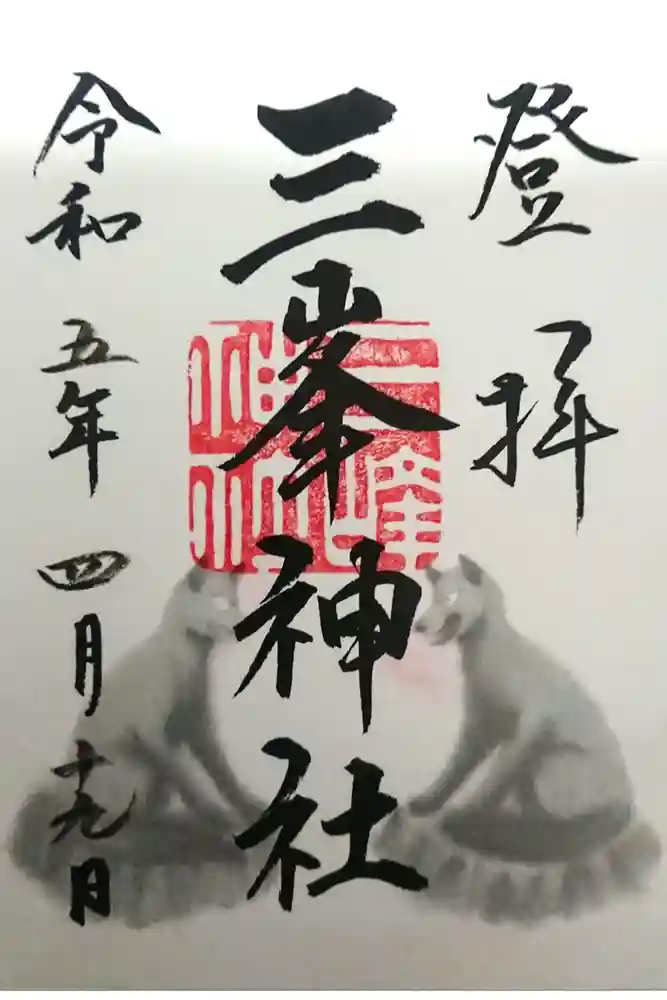 登拝
三峯神社
令和五年四月十九日